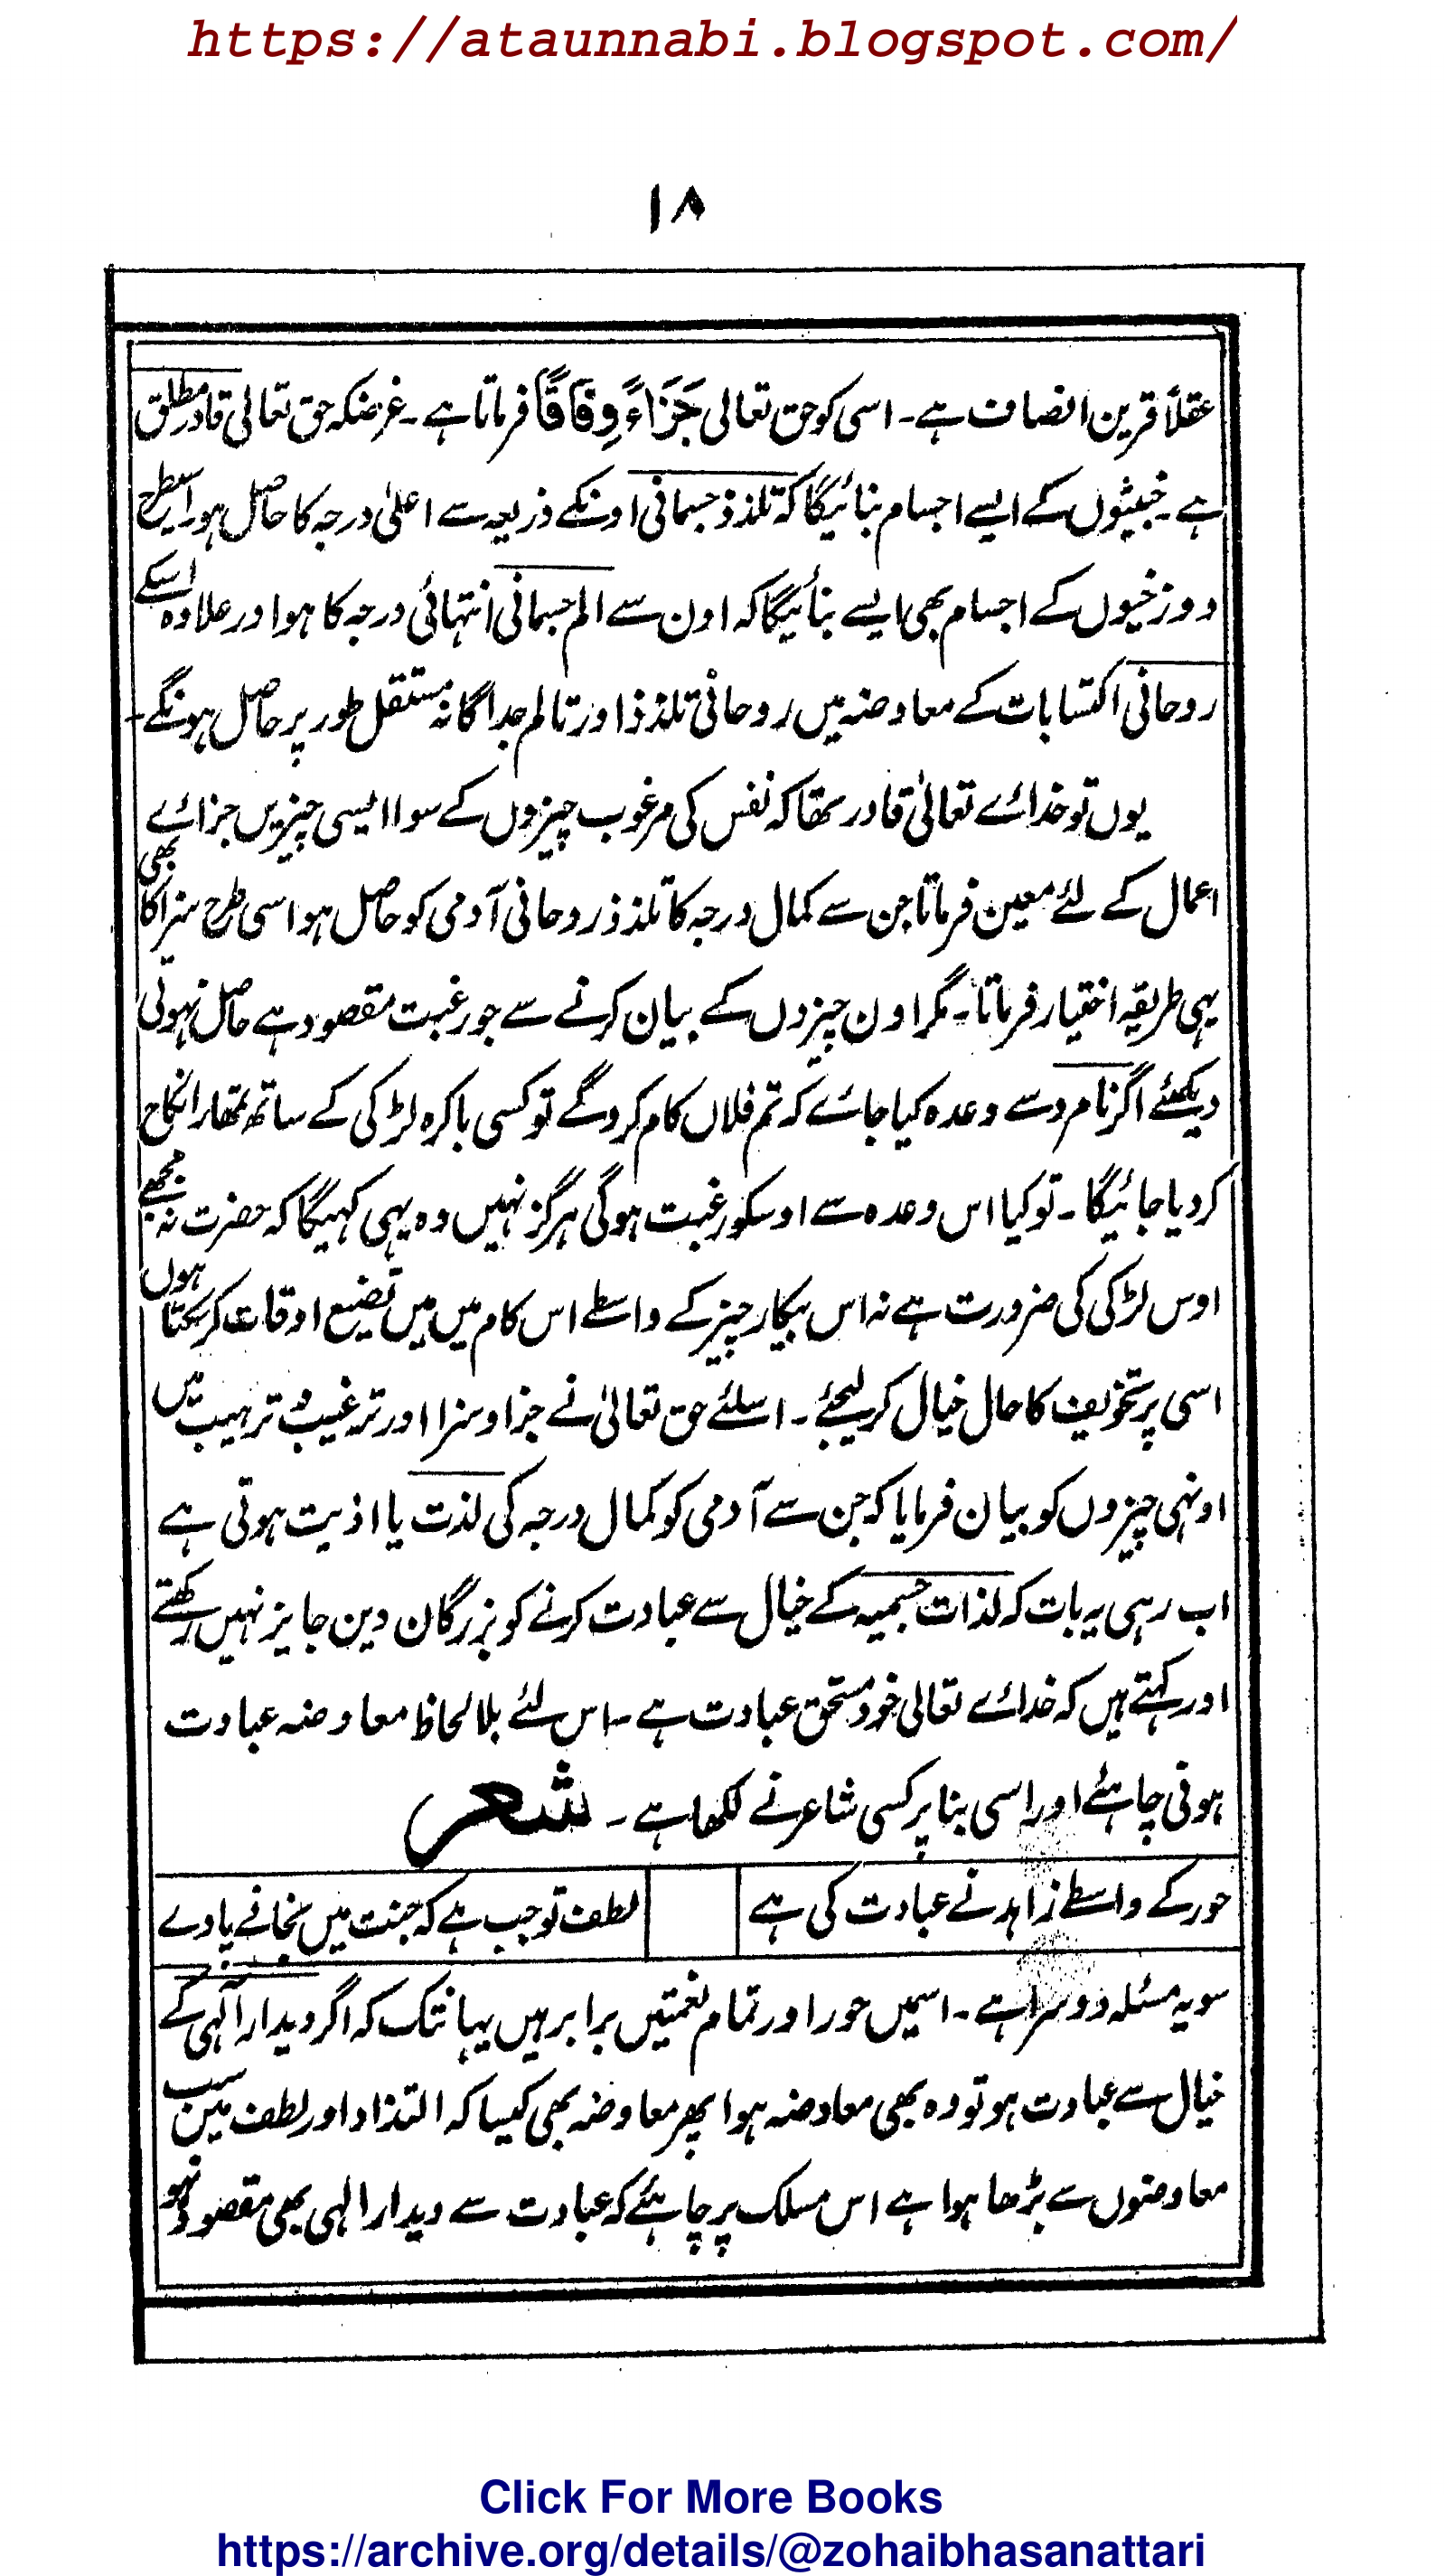 https://ataunnabi.blogspot.com/
۱۸
عقلاً قرین انصاف ہے۔ اسی کو حق تعالی جَزَاءً وِفَاقًا فرماتا ہے۔ غرضکہ حق تعالی قادر مطلق
ہے۔ جنتیوں کے ایسے اجسام بنائیگا کہ تلذذ جسمانی اونکے ذریعہ سے اعلیٰ درجہ کا حاصل ہو۔ اسیطرح
دوزخیوں کے اجسام بھی ایسے بنائیگا کہ اون سے الم جسمانی انتہائی درجہ کا ہو اور علاوہ اسکے
روحانی اکتسابات کے معاوضہ میں روحانی تلذذ اور تالم جداگانہ مستقل طور پر حاصل ہونگے۔
یوں تو خدائے تعالیٰ قادر تھا کہ نفس کی مرغوب چیزوں کے سوا ایسی چیزیں جزائے
اعمال کے لئے معین فرماتا جن سے کمال درجہ کا تلذذ روحانی آدمی کو حاصل ہو اسی طرح سزا کا بھی
یہی طریقہ اختیار فرماتا۔ مگر اون چیزوں کے بیان کرنے سے جو رغبت مقصود ہے حاصل نہوتی
دیکھئے اگر نامرد سے وعدہ کیا جائے کہ تم فلاں کام کروگے تو کسی باکرہ لڑکی کے ساتھ تمھارا نکاح
کردیا جائیگا۔ تو کیا اس وعدہ سے اوسکو رغبت ہوگی ہرگز نہیں وہ یہی کہیگا کہ حضرت نہ مجھے
اوس لڑکی کی ضرورت ہے نہ اس بیکار چیز کے واسطے اس کام میں میں تضیع اوقات کرسکتا ہوں
اسی پر تخویف کا حال خیال کرلیجئے۔ اسلئے حق تعالیٰ نے جزا و سزا اور ترغیب و ترہیب میں
اونہی چیزوں کو بیان فرمایا کہ جن سے آدمی کو کمال درجہ کی لذت یا اذیت ہوتی ہے
اب رہی یہ بات کہ لذات جسمیہ کے خیال سے عبادت کرنے کو بزرگان دین جایز نہیں رکھتے
اور کہتے ہیں کہ خدائے تعالی خود مستحق عبادت ہے۔ اس لئے بلا لحاظ معاوضہ عبادت
ہونی چاہئے اور اسی بنا پر کسی شاعر نے لکھا ہے۔ شعر
حور کے واسطے زاہد نے عبادت کی ہے لطف تو جب ہے کہ جنت میں نجانے پاوے
سو یہ مسئلہ دوسرا ہے۔ اسمیں حور اور تمام نعمتیں برابر ہیں یہانتک کہ اگر دیدار آلہی کے
خیال سے عبادت ہو تو وہ بھی معاوضہ ہوا پھر معاوضہ بھی کیسا کہ التذاذ اور لطف میں سب
معاوضوں سے بڑھا ہوا ہے اس مسلک پر چاہئے کہ عبادت سے دیدار الہی بھی مقصود نہو
Click For More Books
https://archive.org/details/@zohaibhasanattari